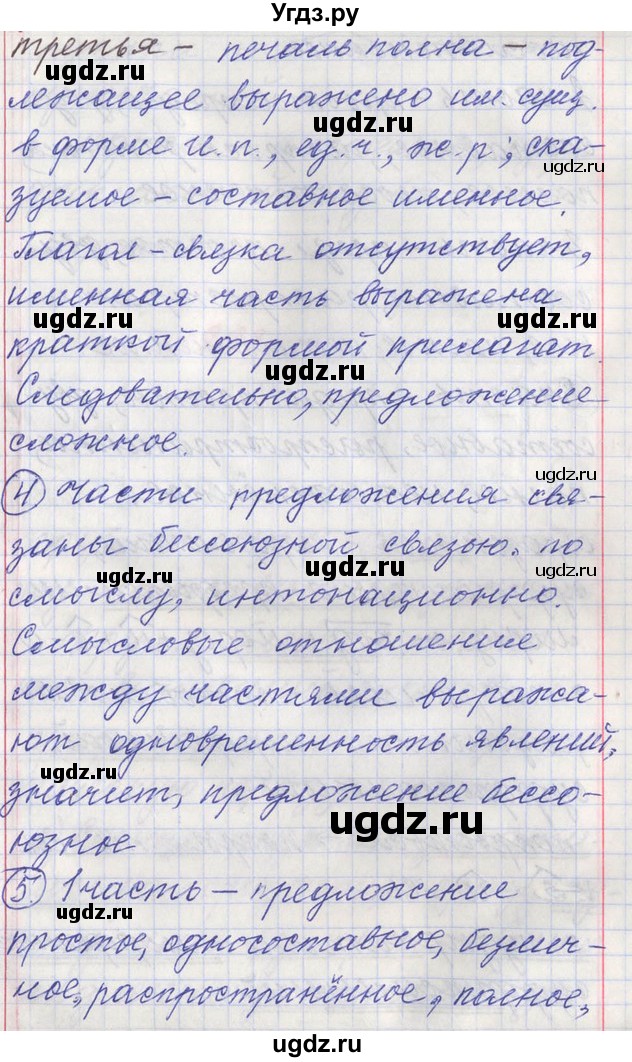 Угдз.ру
третья – печаль полна – под-
лежащее выражено им. сущ.
в форме И.п., ед.ч., ж.р; ска-
зуемое – составное именное.
Глагол-связка отсутствует,
именная часть выражена
краткой формой прилагат.
Следовательно, предложение
сложное.
4 Части предложения свя-
заны бессоюзной связью. по
смыслу, интонационно.
Смысловые отношения
между частями выража-
ют одновременность явлений,
значит, предложение бессо-
юзное
5 1 часть – предложение
простое, односоставное, безлич-
ное, распространённое, полное,
©ugdz.ru